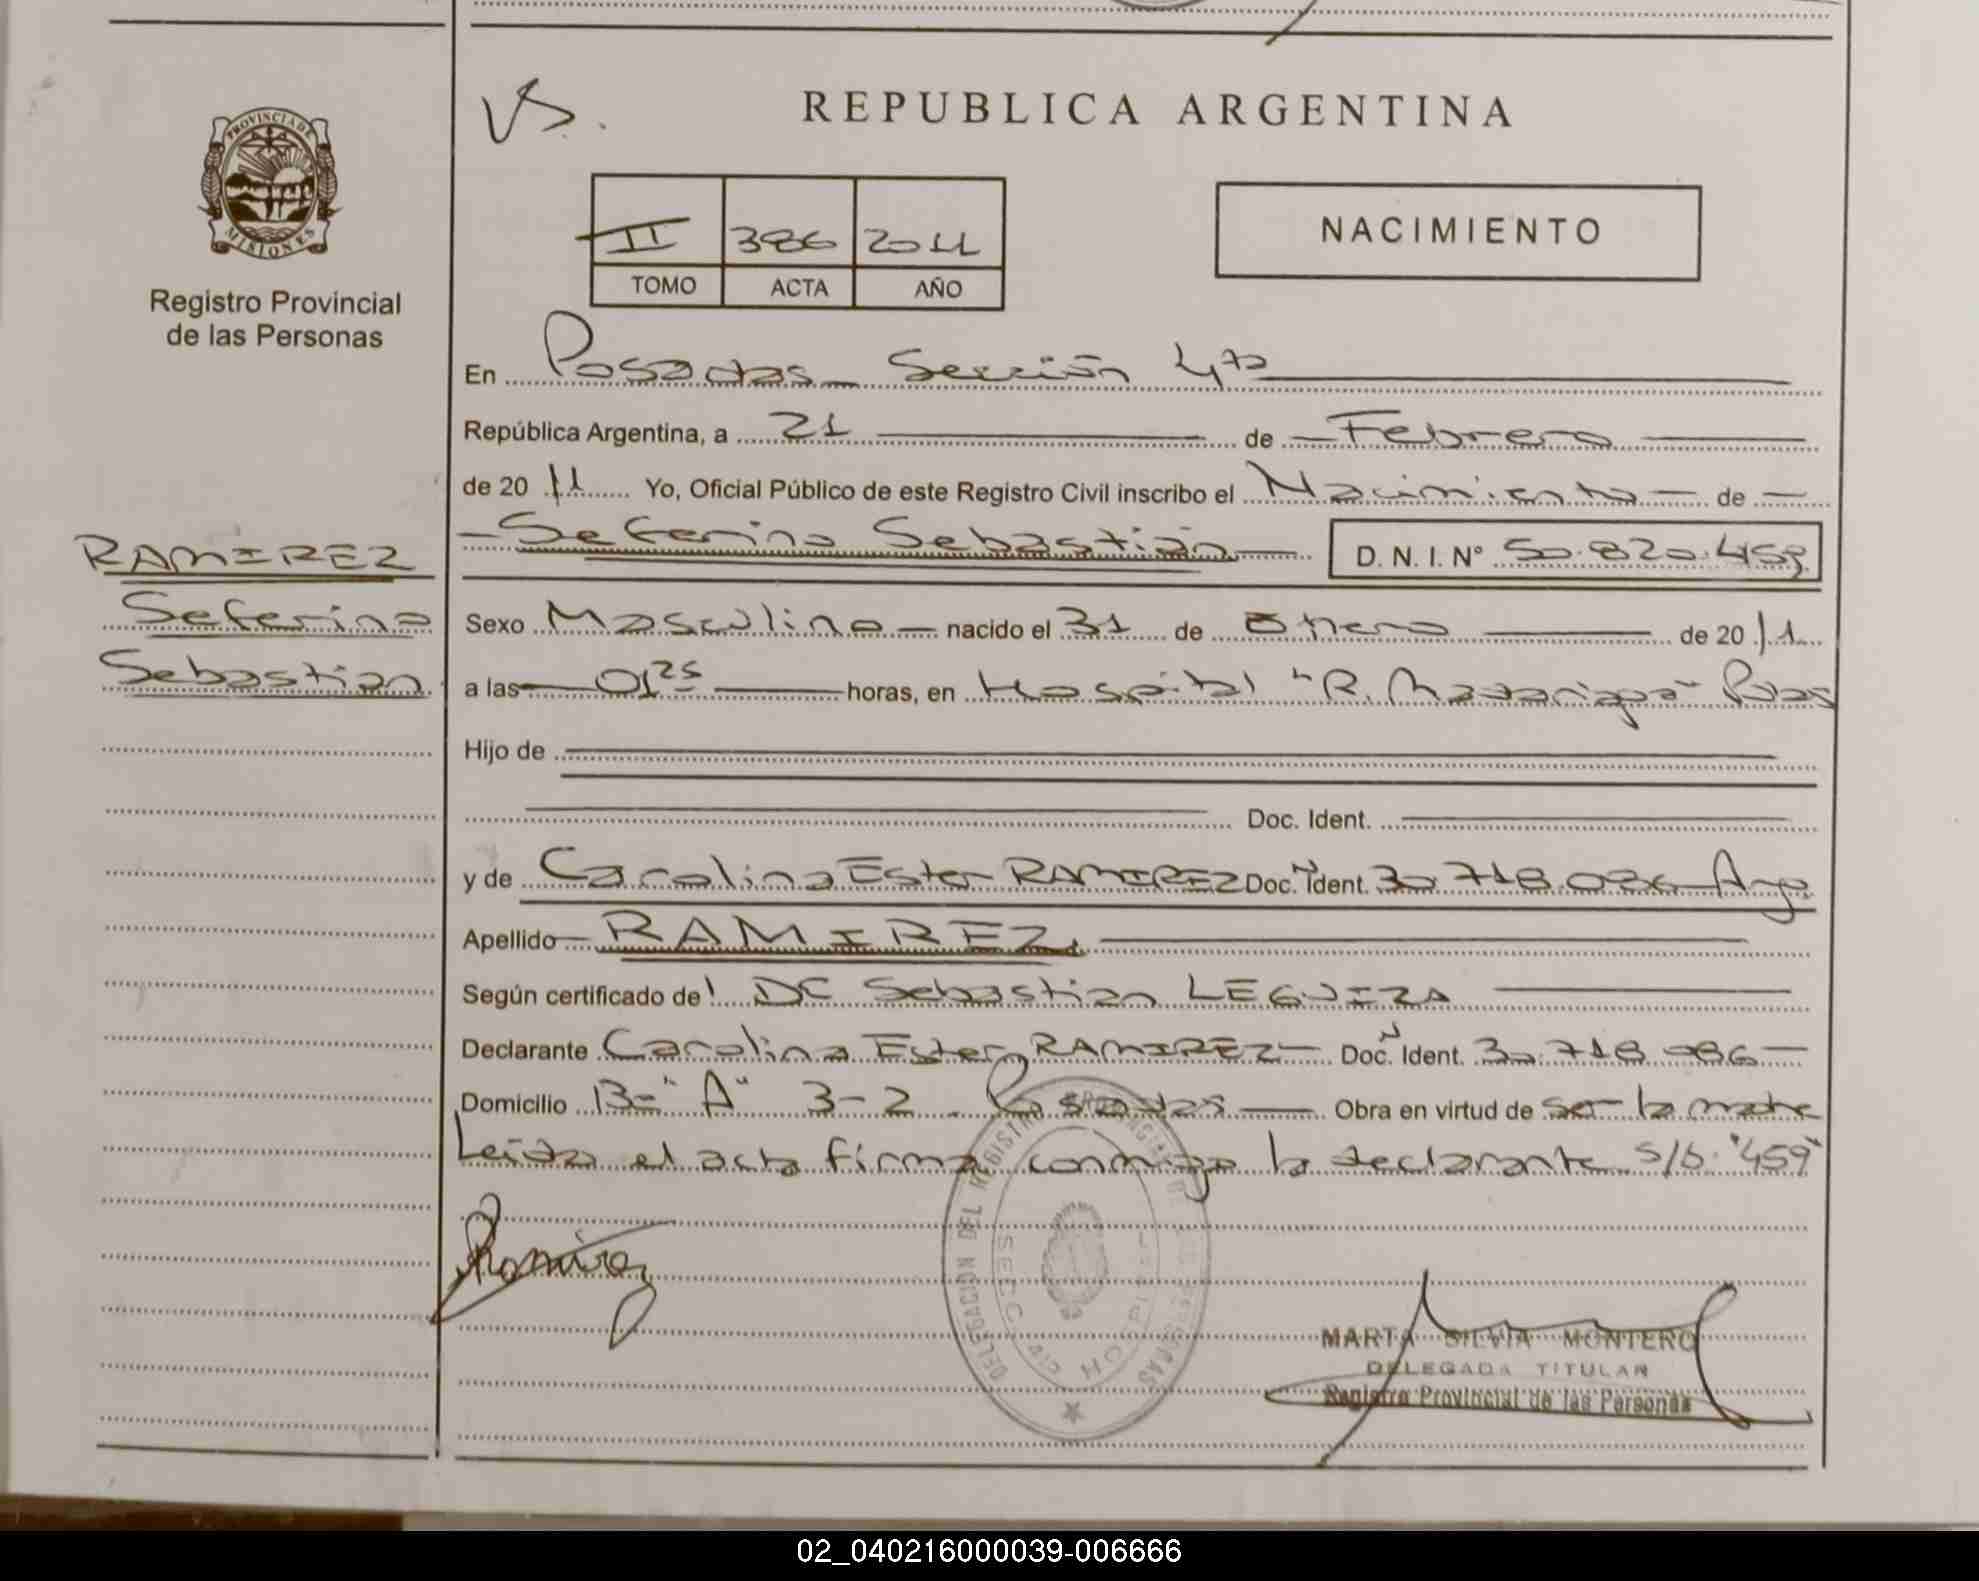 REPUBLICA ARGENTINA
PROVINCIA DE
MISIONES
Registro Provincial
de las Personas
II 386 2011
TOMO ACTA AÑO
NACIMIENTO
En Posadas Sección 4ta
República Argentina, a 21 de Febrero
de 20 11 Yo, Oficial Público de este Registro Civil inscribo el Nacimiento de
Seferino Sebastián D. N. I. N° 50.820.459
RAMIREZ
Seferino
Sebastián
Sexo Masculino nacido el 31 de Enero de 20 11
a las 01 25 horas, en Hospital "R. Madariaga" Pdas
Hijo de
Doc. Ident.
y de Carolina Ester RAMIREZ Doc. Ident. 30.718.086 Arg
Apellido RAMIREZ
Según certificado del Dr Sebastian LEGUIZA
Declarante Carolina Ester RAMIREZ Doc. Ident. 30.718.086
Domicilio B° "A" 3-2 Posadas Obra en virtud de ser la madre
Leída el acta firma conmigo la declarante s/b "459"
Ramirez
DELEGACION DEL REGISTRO PROVINCIAL DE LAS PERSONAS
SECC. 4ta
MARTA SILVIA MONTERO
DELEGADA TITULAR
Registro Provincial de las Personas
02_040216000039-006666